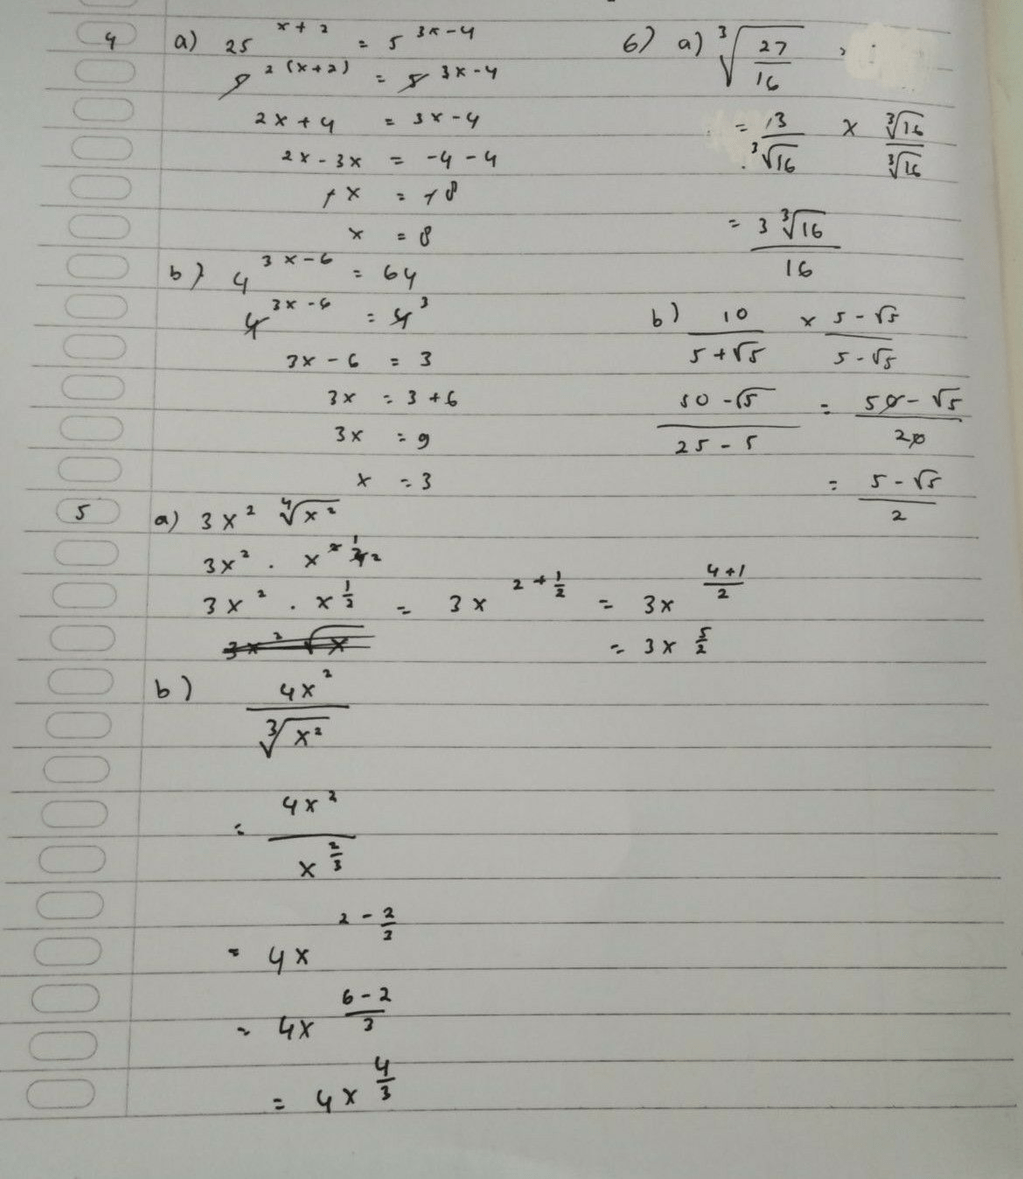 4 a) 25^(x+2) = 5^(3x-4)
5^(2(x+2)) = 5^(3x-4)
2x + 4 = 3x - 4
2x - 3x = -4 - 4
-x = -8
x = 8
b) 4^(3x-6) = 64
4^(3x-6) = 4^3
3x - 6 = 3
3x = 3 + 6
3x = 9
x = 3
5 a) 3x² ∜(x²)
3x² .
3x² . x^(1/2) = 3x^(2 + 1/2) = 3x^((4+1)/2)
3x² √x
= 3x^(5/2)
b) 4x² / ∛(x²)
= 4x² / x^(2/3)
= 4x^(2 - 2/3)
= 4x^((6-2)/3)
= 4x^(4/3)
6) a) ∛(27/16)
= 3/∛16 × ∛16/∛16
= 3∛16 / 16
b) 10/(5+√5) × (5-√5)/(5-√5)
(50-√5)/(25-5) = (50-√5)/20
= (5-√5)/2